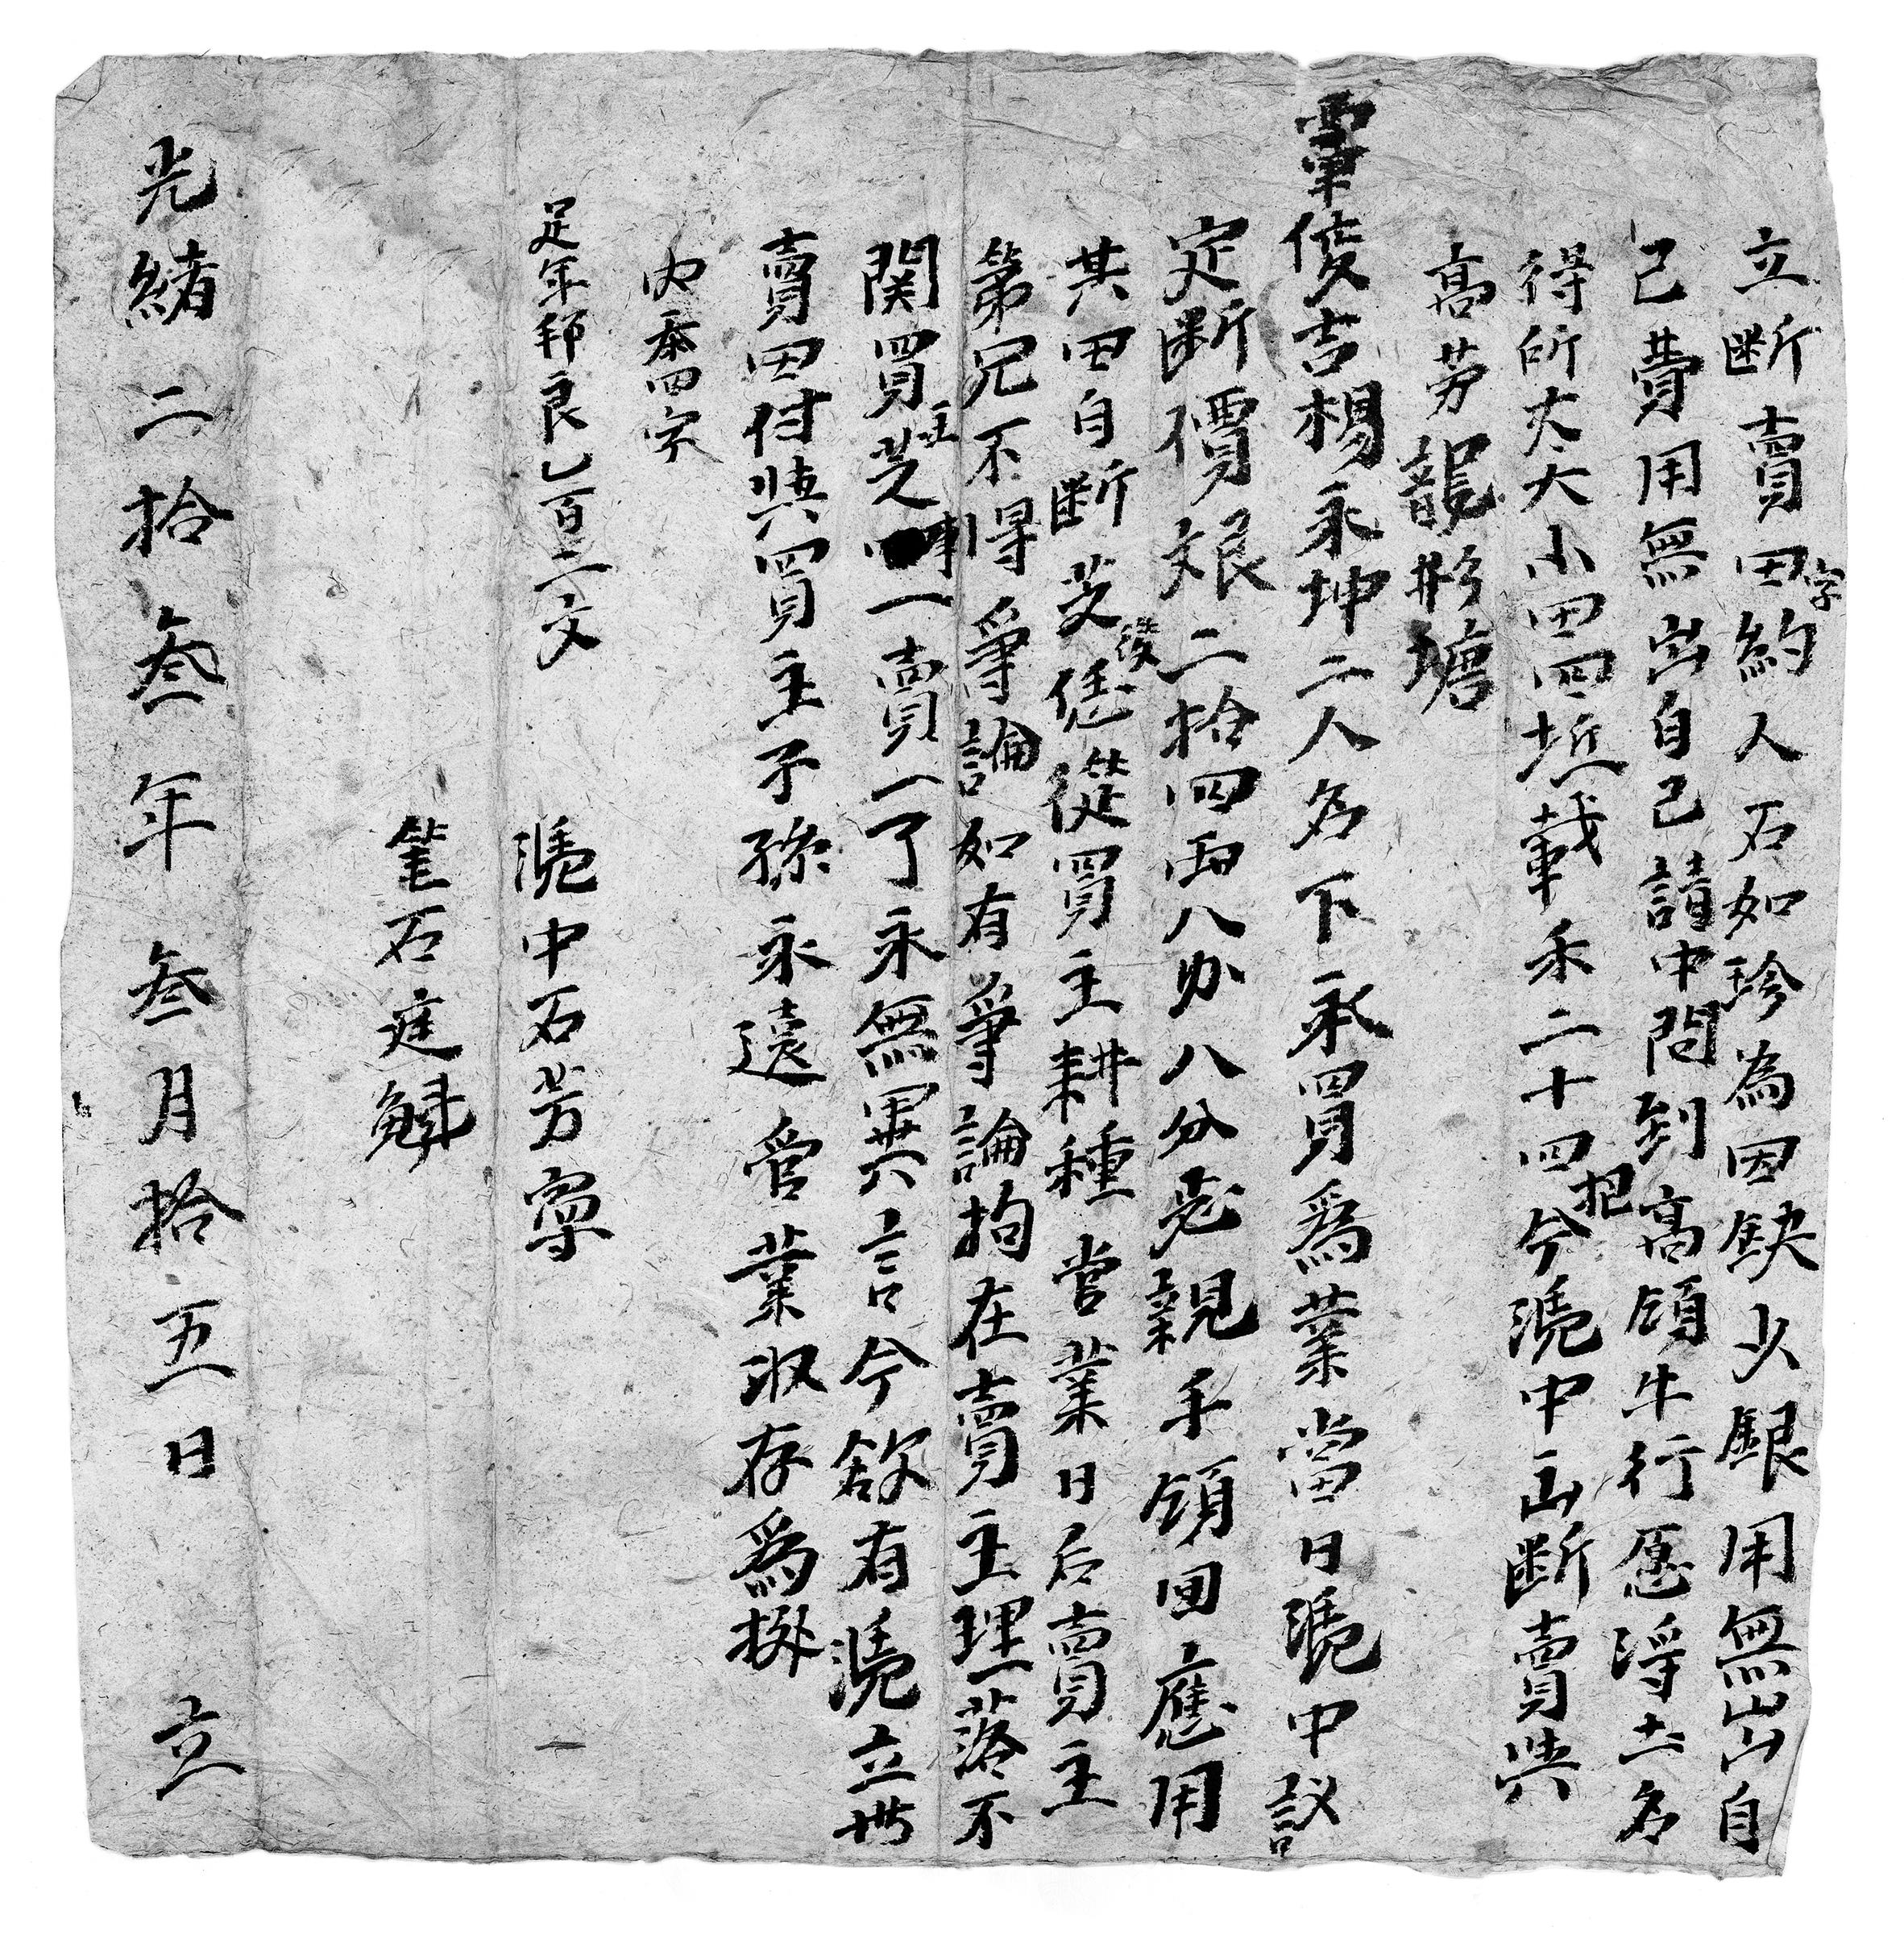 立断賣田字約人石如珍為因缺少銀用無出自
己費用無出自己請中問到高領牛行愿得土名
得所大大小田四坵載禾二十四把今憑中出断賣與
高劳龍形塘
覃俊吉楊永坤二人名下承買為業當日憑中議
定断價艮二拾四両八办八分足親手領回應用
其田自断芝後恁從買主耕種官業日后賣主
第兄不得爭論如有爭論拘在賣主理落不
関買主芝事一賣一了永無異言今欲有憑立此
賣田付與買主子孫永遠管業收存為㨿
内忝四字
足年稅良乙百二文 憑中石芳寧
筆石庭魁
光緒二拾叁年叁月拾五日 立